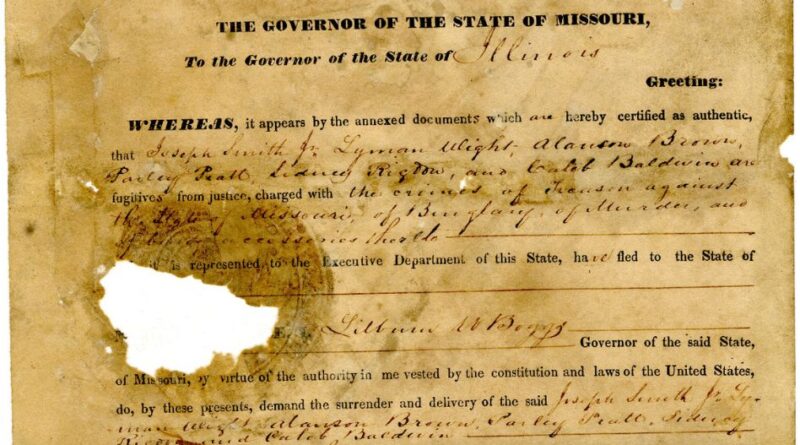 THE GOVERNOR OF THE STATE OF MISSOURI,
To the Governor of the State of Illinois
Greeting:
WHEREAS, it appears by the annexed documents which are hereby certified as authentic,
that Joseph Smith Jr Lyman Wight, Alanson Brown,
Parley Pratt, Sidney Rigdon, and Caleb Baldwin are
fugitives from justice, charged with the crimes of Treason against
the State of Missouri, of Burglary, of Murder, and
of being accessories thereto
it is represented to the Executive Department of this State, have fled to the State of
Lilburn W Boggs
Governor of the said State,
of Missouri, by virtue of the authority in me vested by the constitution and laws of the United States,
do, by these presents, demand the surrender and delivery of the said Joseph Smith Jr Ly-
man Wight Alanson Brown, Parley Pratt, Sidney
Rigdon and Caleb Baldwin